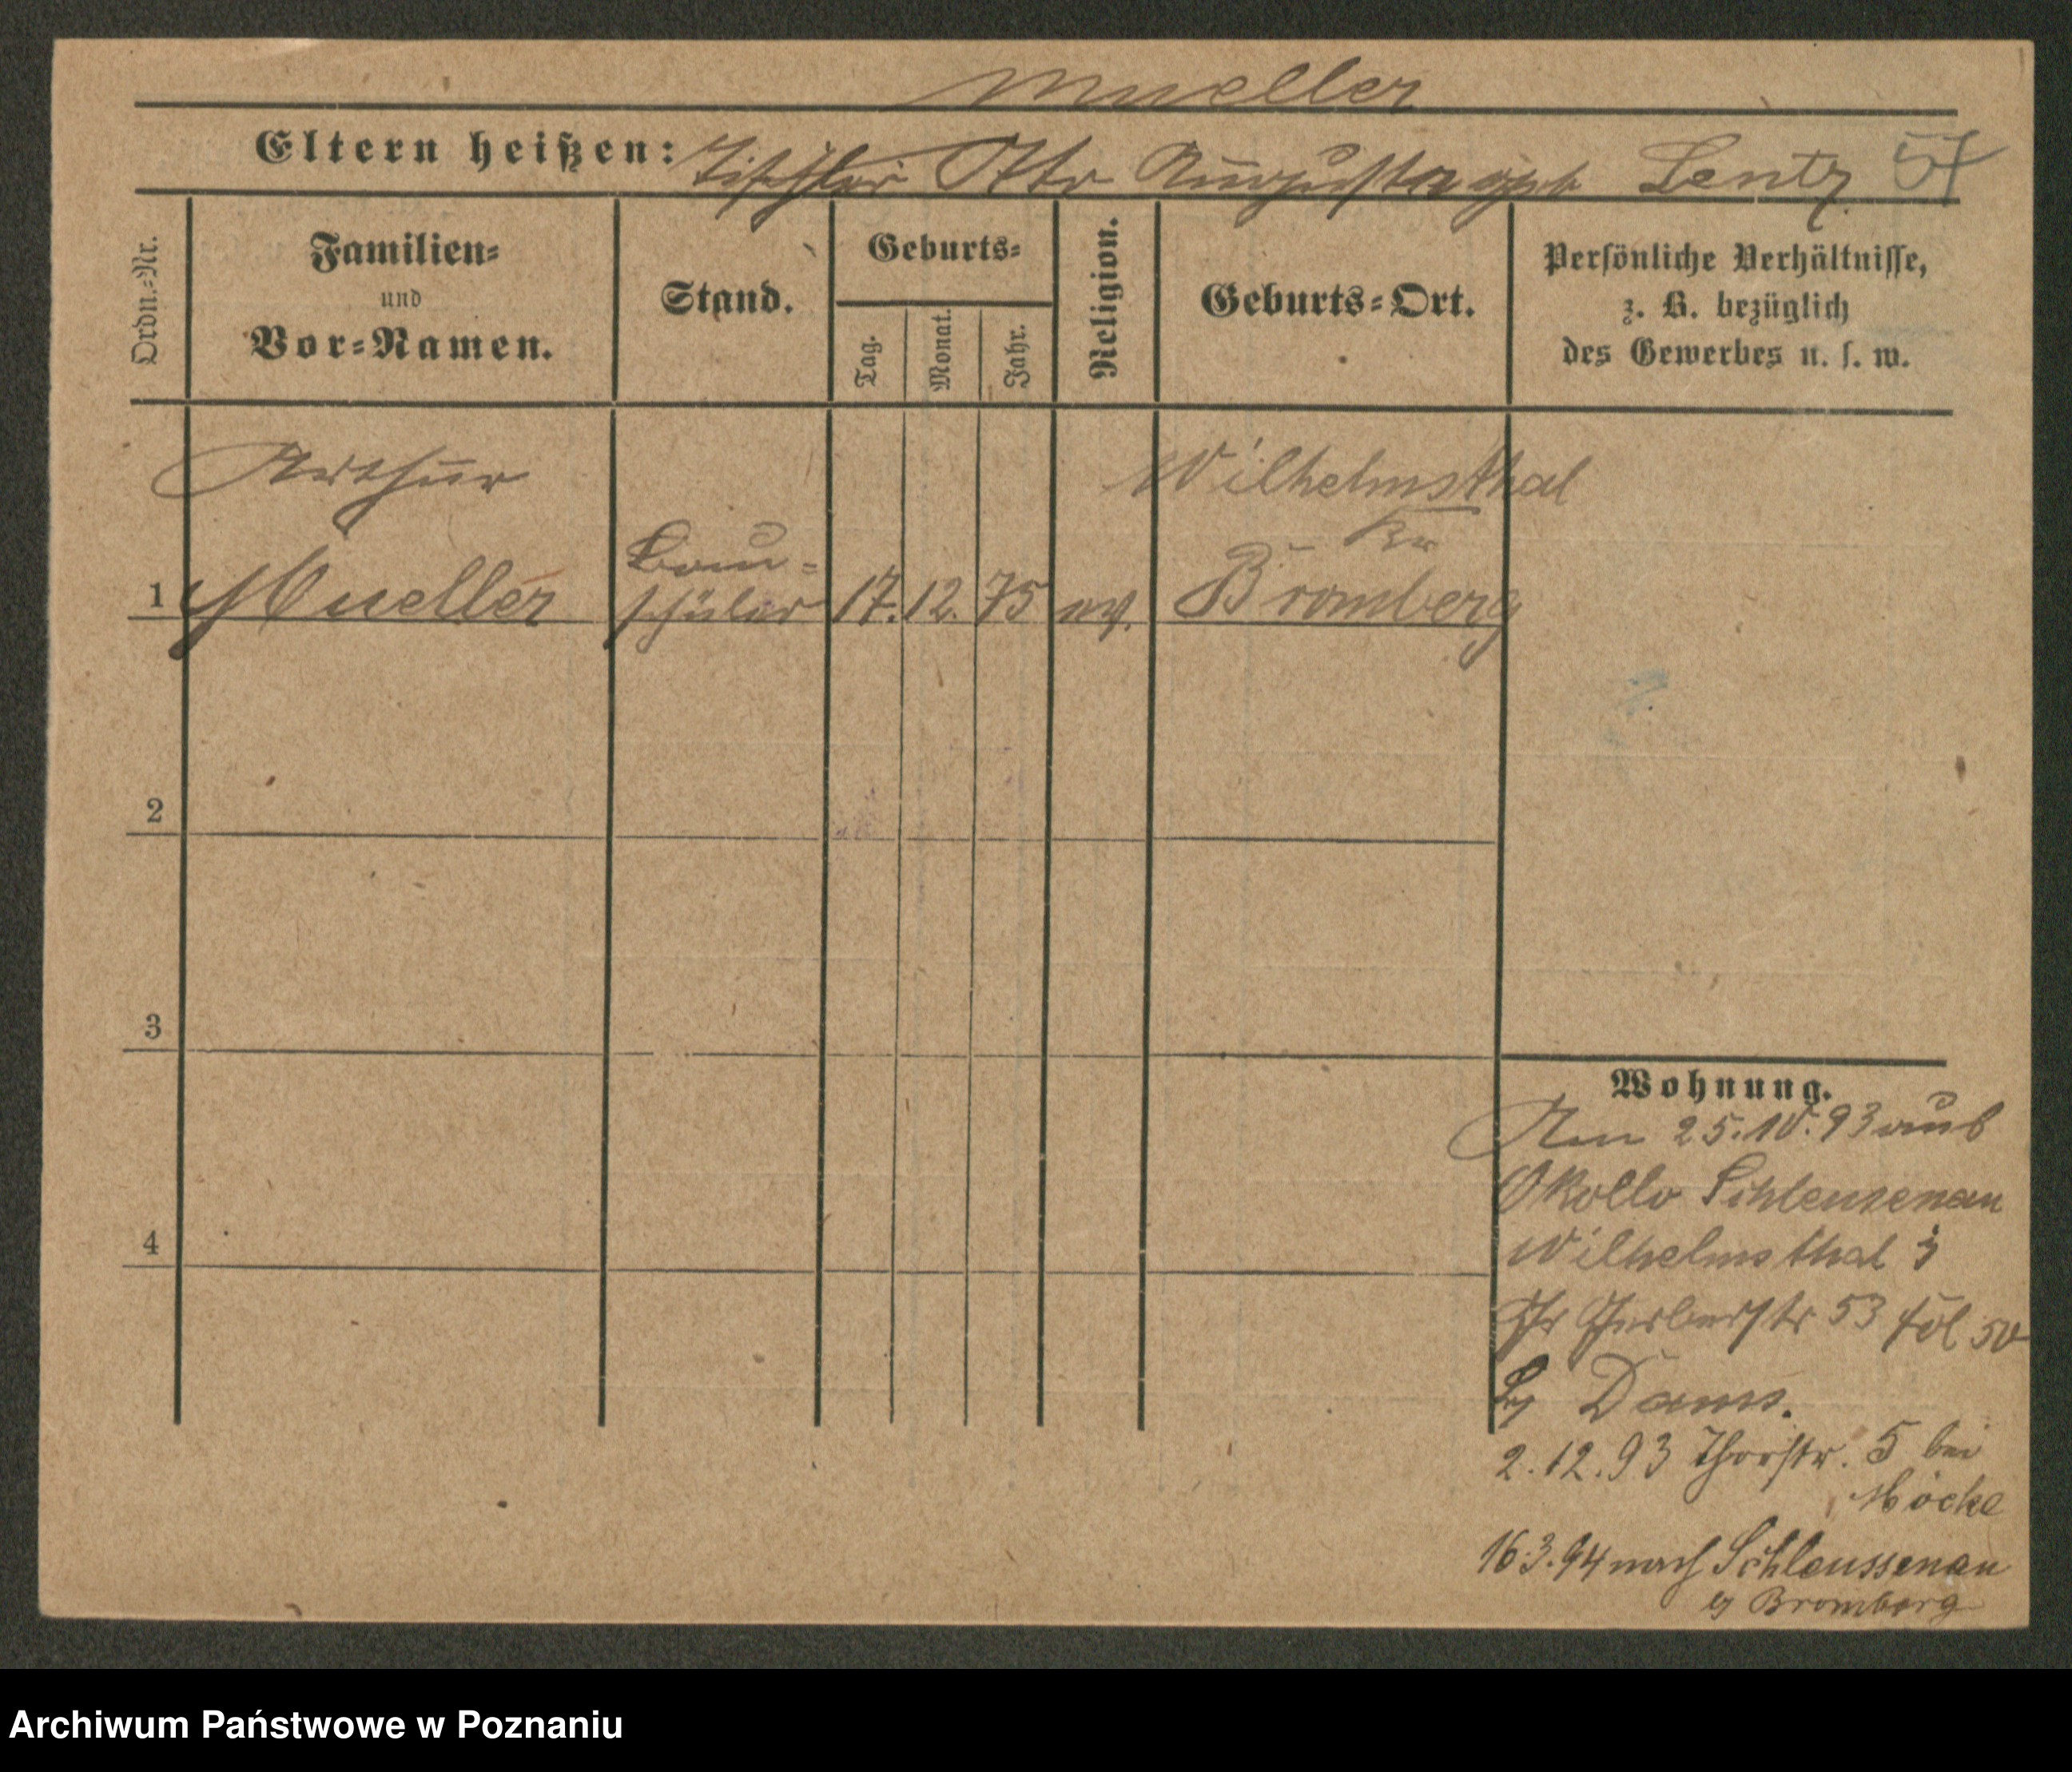 Mueller
Eltern heißen: Tischler Otto Augusta geb Lentz 57
Ordn.-Nr.
Familien-
und
Vor-Namen.
Stand.
Geburts-
Tag.
Monat.
Jahr.
Religion.
Geburts-Ort.
Persönliche Verhältnisse,
z. B. bezüglich
des Gewerbes u. s. w.
Arthur
Mueller
Bau-
schüler
1
17. 12. 75 ev.
Wilhelmsthal
Kr
Bromberg
2
3
4
Wohnung.
Am 25.10.93 aus
Okollo Schleusenau
Wilhelmsthal
53 50
Dams.
2.12.93 Thorstr. 5 bei
Möcke
16.3.94 nach Schleussenau
Bromberg
Archiwum Państwowe w Poznaniu